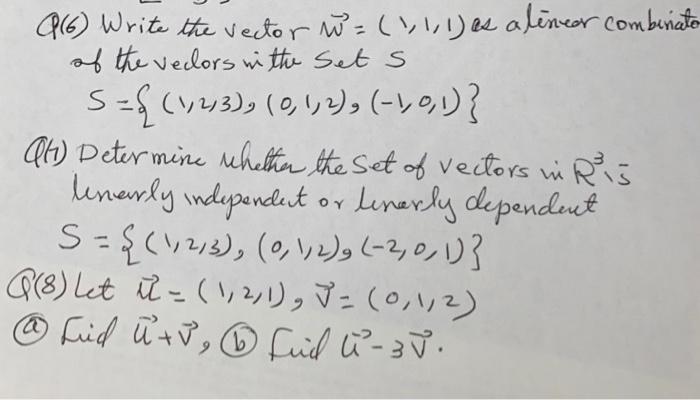 Q(6) Write the vector w⃗ = (1,1,1) as a linear combinatio
of the vectors in the Set S
S = { (1,2,3), (0,1,2), (-1,0,1) }
Q(7) Determine whether the Set of vectors in R³ is
linearly independent or linearly dependent
S = { (1,2,3), (0,1,2), (-2,0,1) }
Q(8) Let u⃗ = (1,2,1), v⃗ = (0,1,2)
ⓐ find u⃗ + v⃗, ⓑ find u⃗ - 3v⃗.